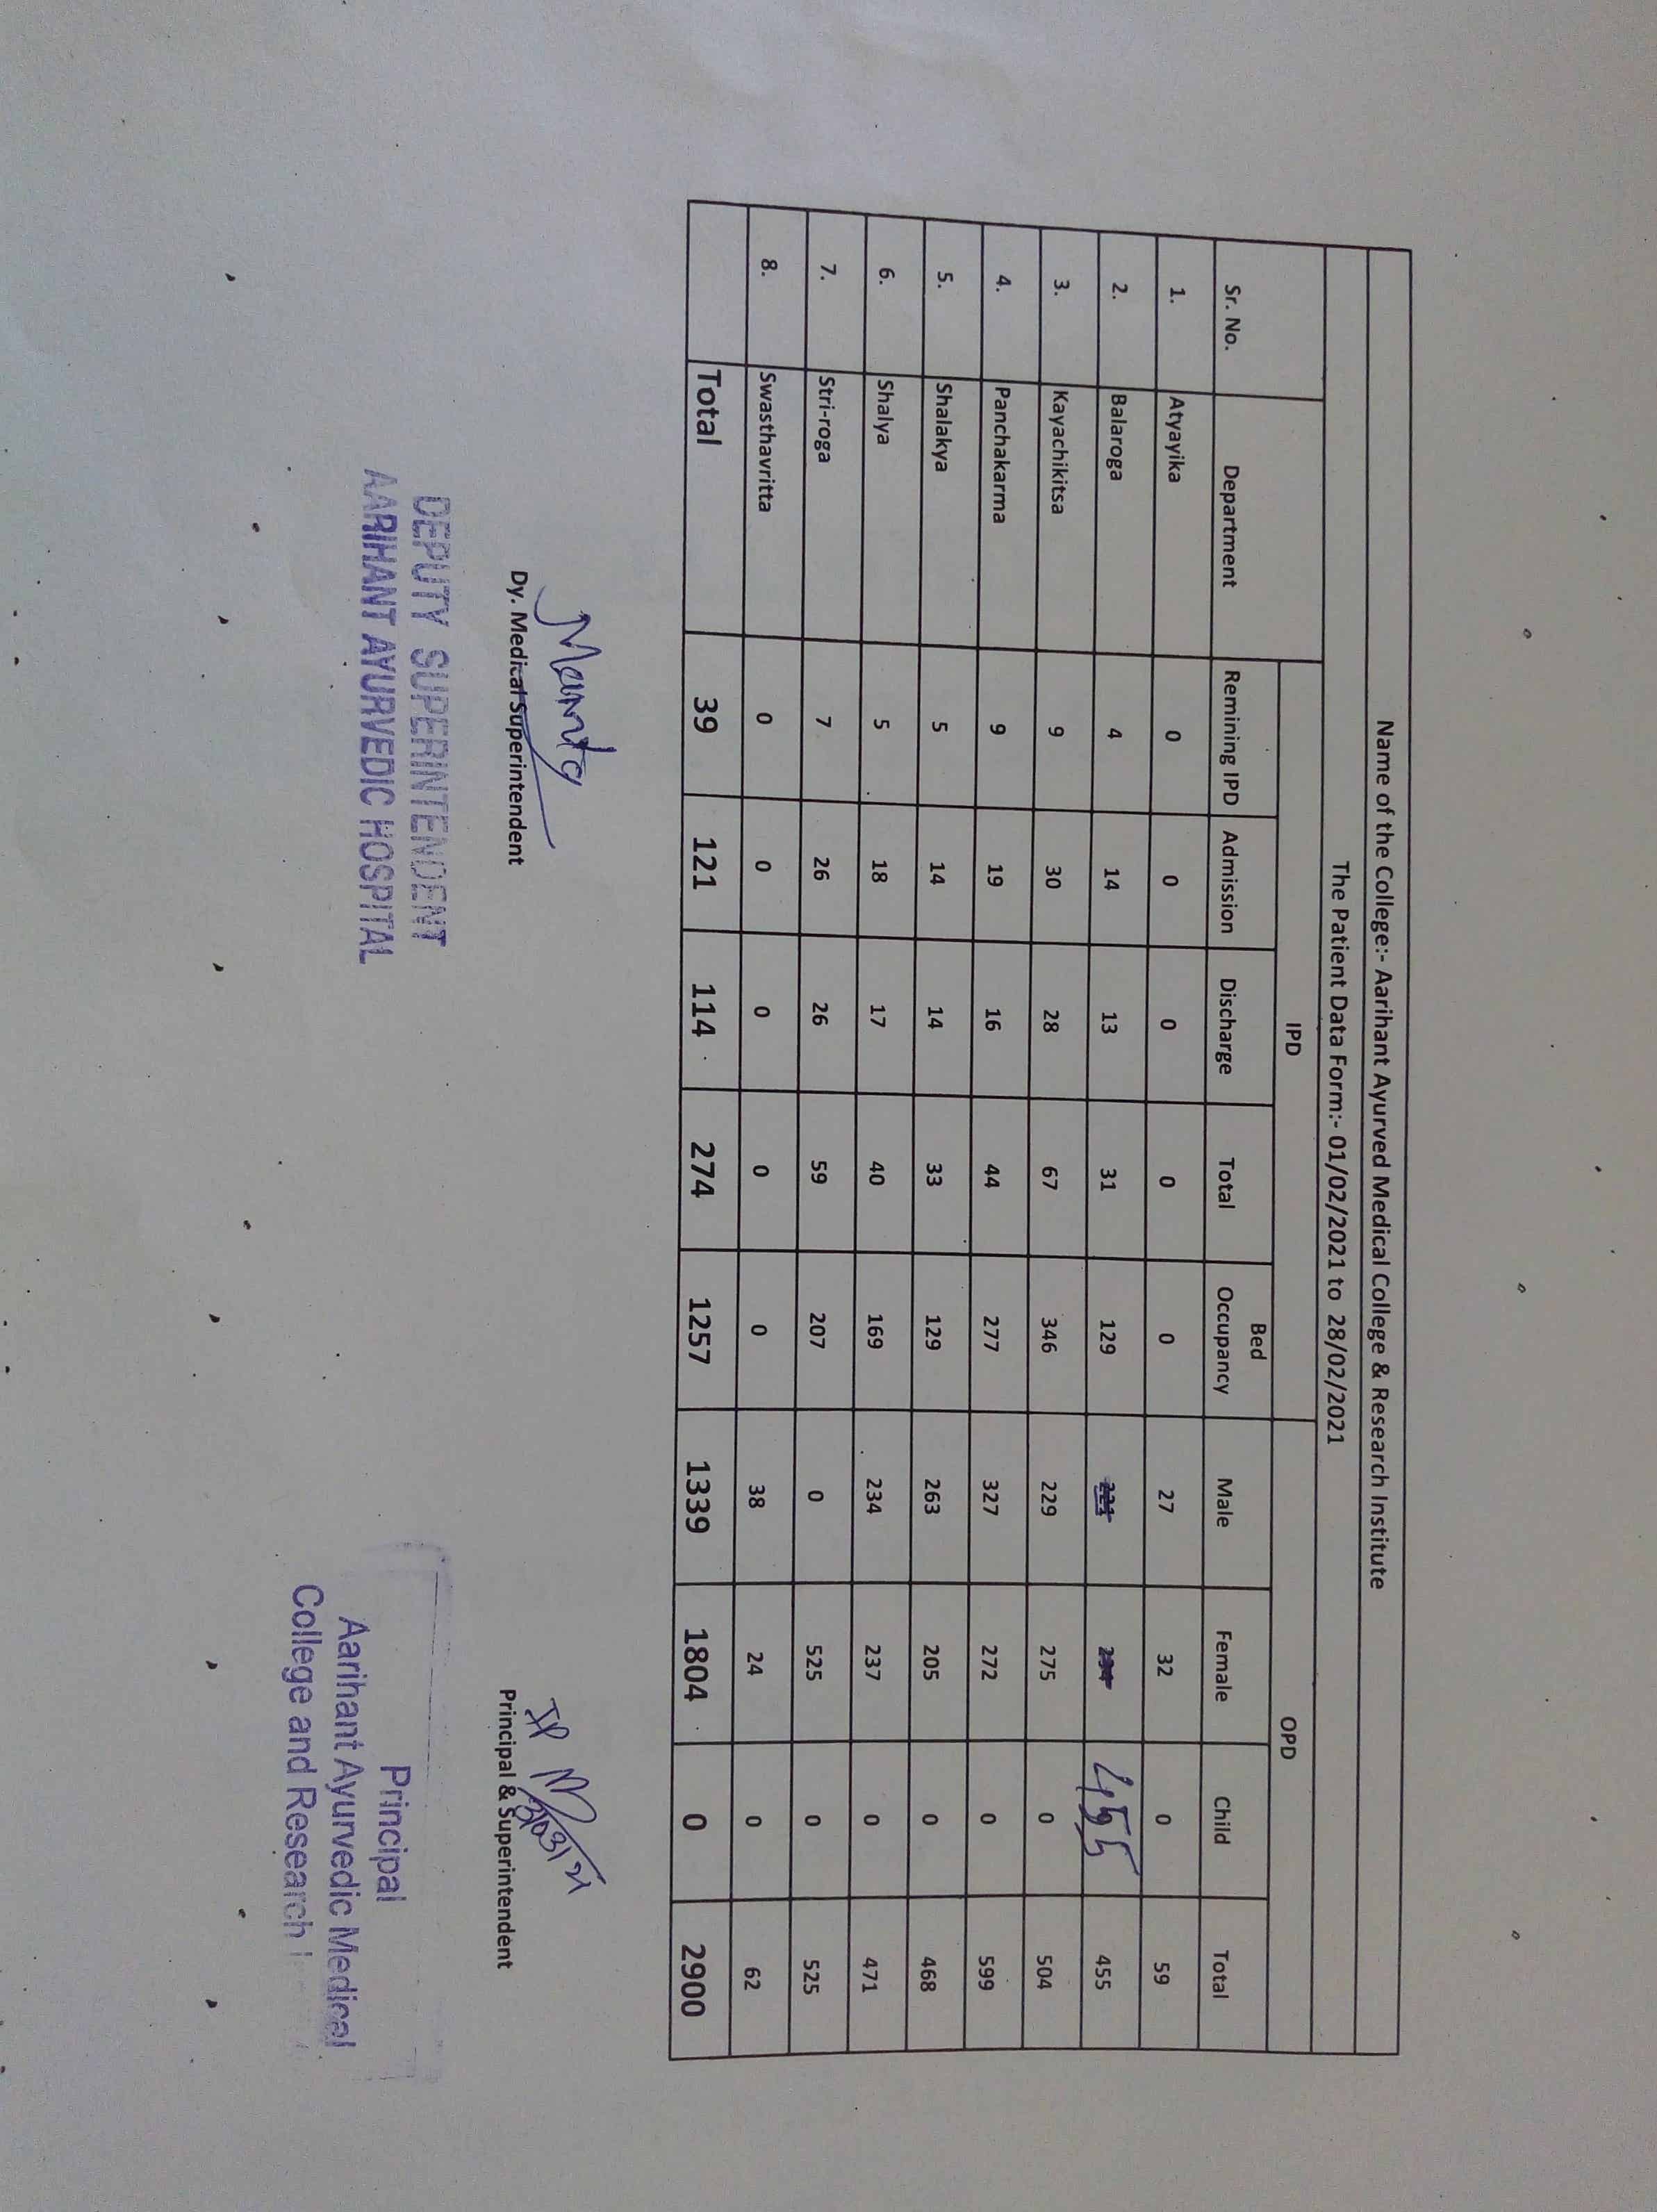 Name of the College:- Aarihant Ayurved Medical College & Research Institute
The Patient Data Form:- 01/02/2021 to 28/02/2021
IPD OPD
Sr. No. Department Remining IPD Admission Discharge Total Bed Occupancy Male Female Child Total
1. Atyayika 0 0 0 0 0 27 32 0 59
2. Balaroga 4 14 13 31 129 455 455
3. Kayachikitsa 9 30 28 67 346 229 275 0 504
4. Panchakarma 9 19 16 44 277 327 272 0 599
5. Shalakya 5 14 14 33 129 263 205 0 468
6. Shalya 5 18 17 40 169 234 237 0 471
7. Stri-roga 7 26 26 59 207 0 525 0 525
8. Swasthavritta 0 0 0 0 0 38 24 0 62
Total 39 121 114 274 1257 1339 1804 0 2900
Dy. Medical Superintendent
Principal & Superintendent
DEPUTY SUPERINTENDENT
AARIHANT AYURVEDIC HOSPITAL
Principal
Aarihant Ayurvedic Medical
College and Research